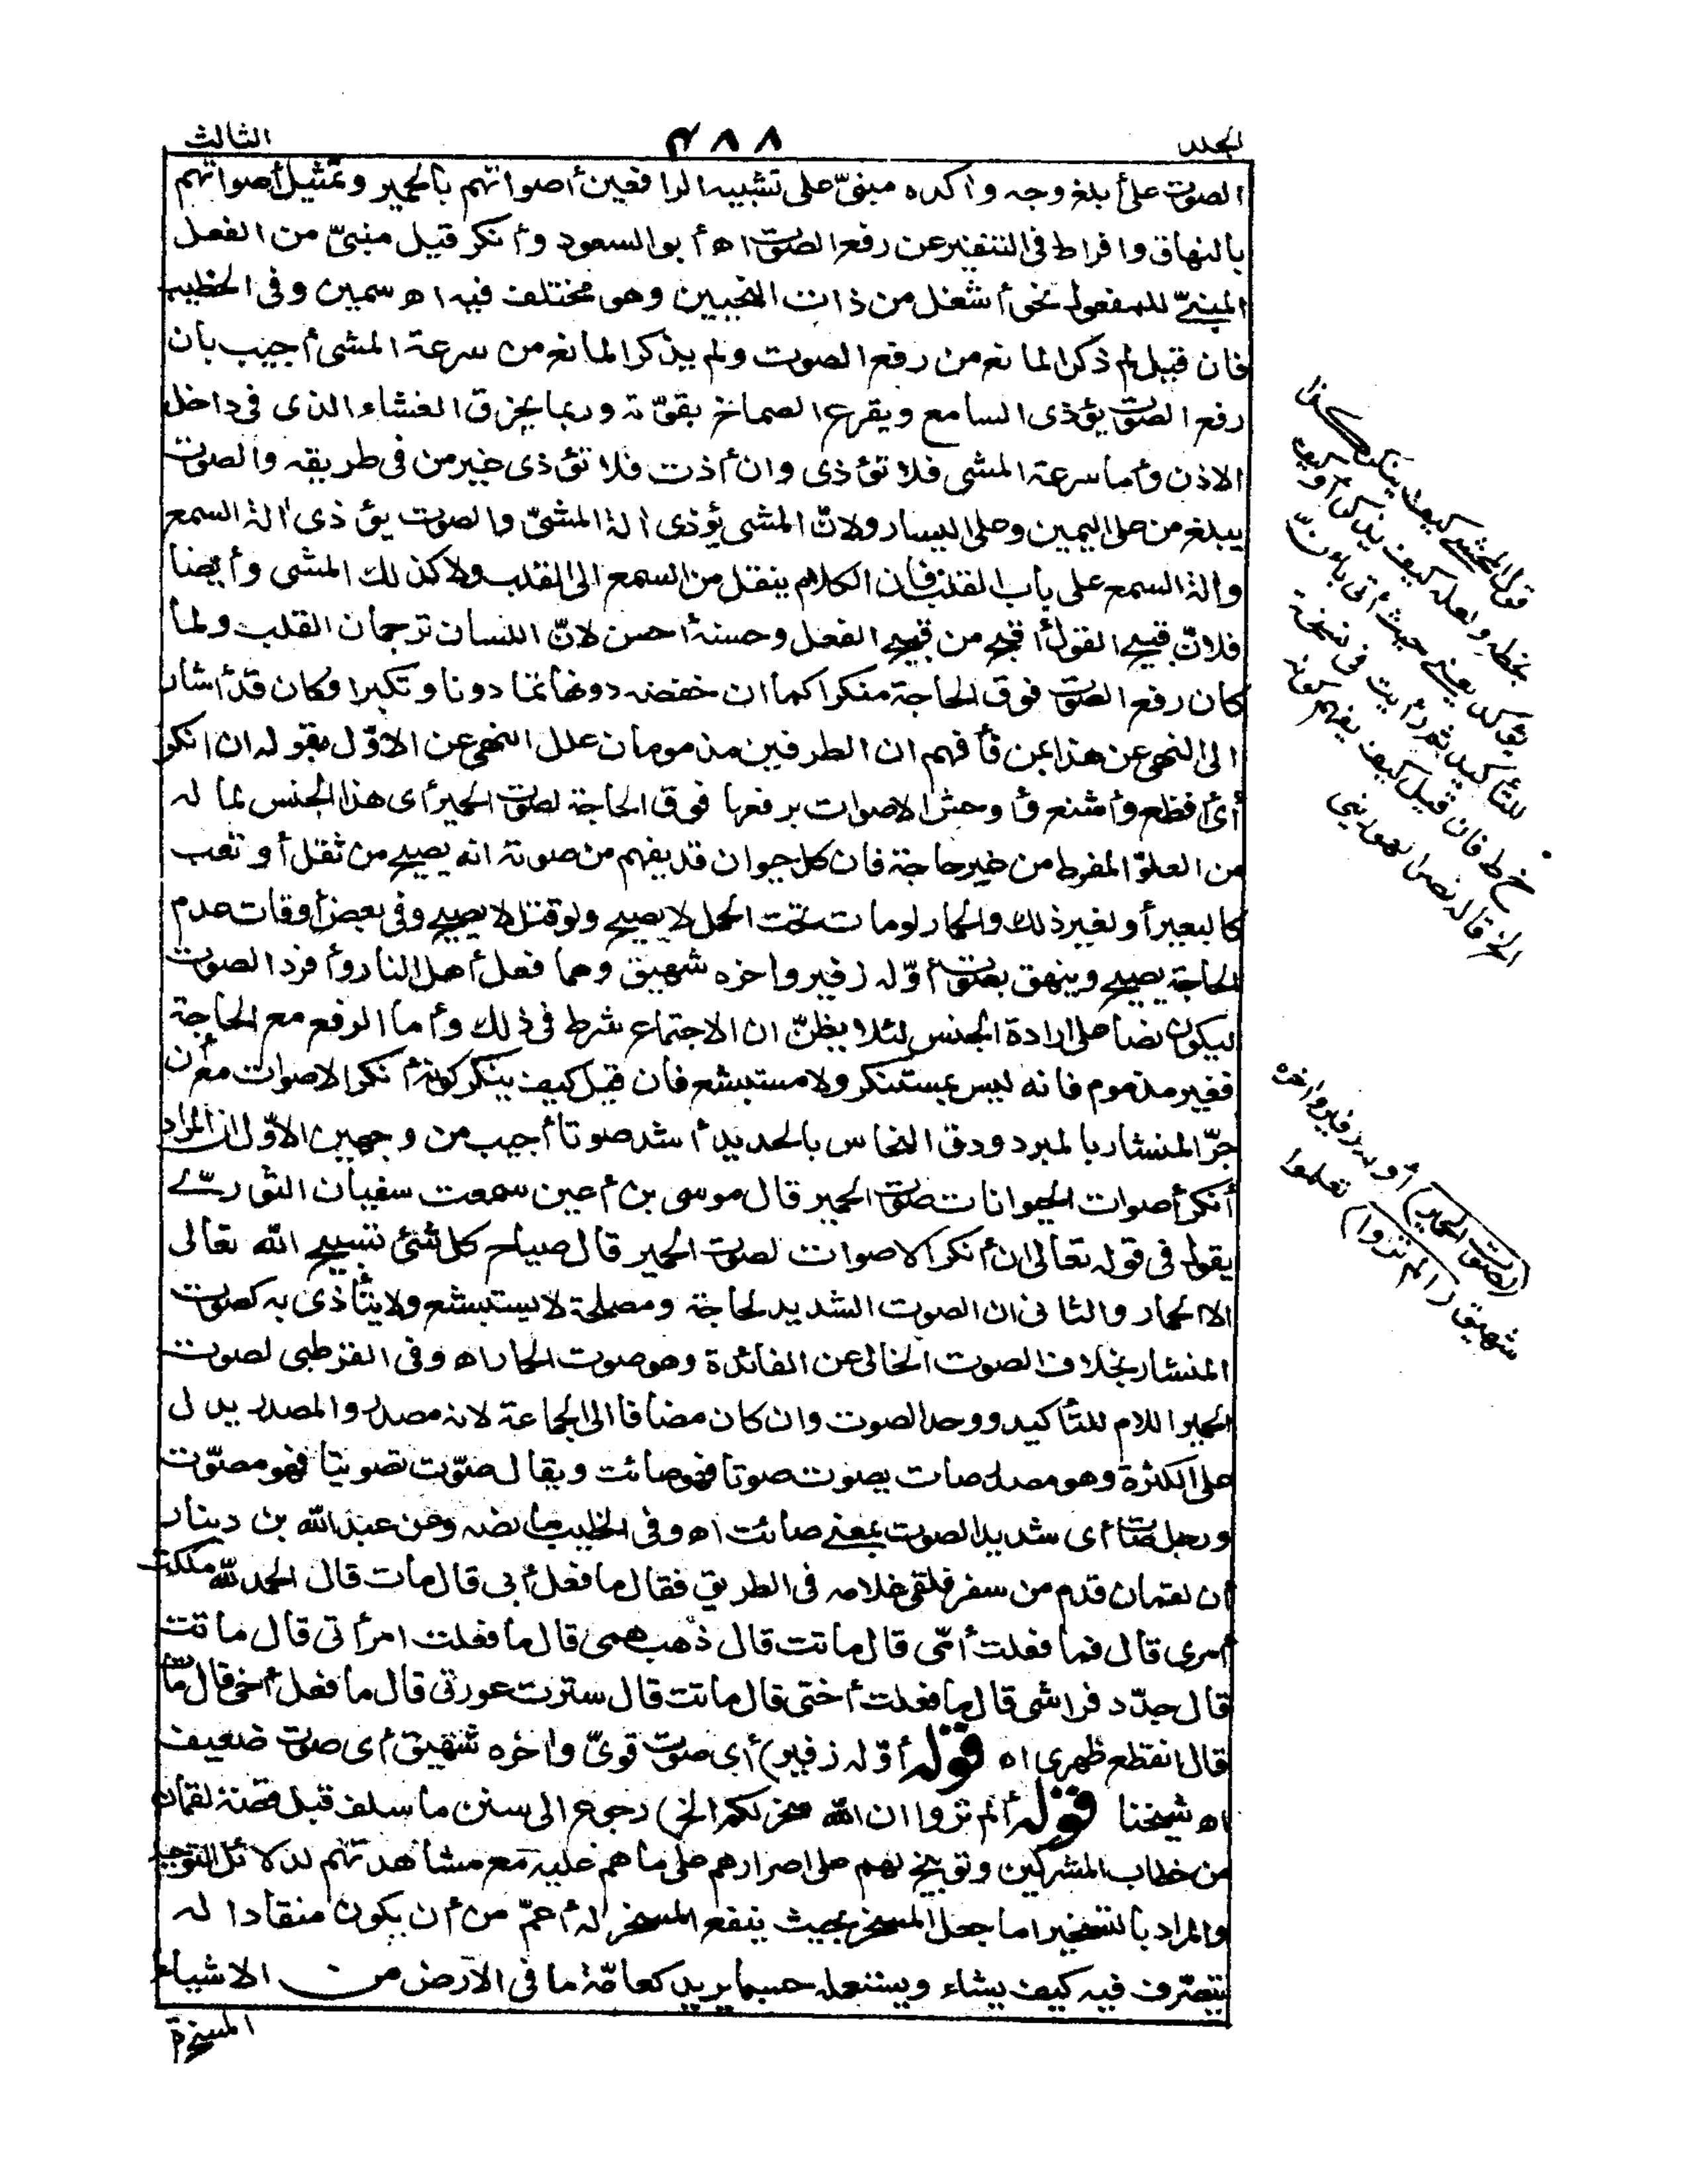 الجلد ٤٨٨ الثالث
الصوت على أبلغ وجه واكده مبنىّ على تشبيه الرافعين أصواتهم بالحمير وتمثيل أصواتهم
بالنهاق وافراط فى التنفير عن رفع الصوت اه أبو السعود وأنكر قيل مبنىّ من الفعل
المبنىّ للمفعول نحو أشغل من ذات النحيين وهو مختلف فيه اه سمين وفى الخطيب
فان قيل لم ذكر المانع من رفع الصوت ولم يذكر المانع من سرعة المشى أجيب بان
رفع الصوت يؤذى السامع ويقرع الصماخ بقوّته وربما يخرق الغشاء الذى فى داخل
الاذن وأما سرعة المشى فلا تؤذى وان أذت فلا تؤذى غير من فى طريقه والصوت
يبلغ من على اليمين وعلى اليسار ولانّ المشى يؤذى الة المشىّ والصوت يؤذى الة السمع
والة السمع على باب القلب فان الكلام ينقل من السمع الى القلب ولا كذلك المشى وأيضا
فلانّ قبيح القول أقبح من قبيح الفعل وحسنه أحسن لانّ اللسان ترجمان القلب ولما
كان رفع الصوت فوق الحاجة منكرا كما ان خفضه دونها تماوتا وتكبرا وكان قد أشار
الى النهى عن هذا بمن فأفهم ان الطرفين مذمومان علل النهى عن الاوّل بقوله ان انكر
أى أفظع وأشنع وأوحش الاصوات برفعها فوق الحاجة لصوت الحمير أى هذا الجنس لما له
من العلوّ المفرط من غير حاجة فان كل حيوان قد يفهم من صوته انه يصيح من ثقل أو تعب
كالبعير أو لغير ذلك والحمار لو مات تحت الحمل لا يصيح ولو قتل لا يصيح وفى بعض أوقات عدم
الحاجة يصيح وينهق بصوت أوّله زفير واخره شهيق وهما فعل أهل النار وأفرد الصوت
ليكون نصا على ارادة الجنس لئلا يظنّ ان الاجتماع شرط فى ذلك وأما الرفع مع الحاجة
فغير مذموم فانه ليس بمستنكر ولا مستبشع فان قيل كيف ينكر كونه أنكر الاصوات مع أن
جرّ المنشار بالمبرد ودق النحاس بالحديد أشد صوتا أجيب من وجهين الاوّل ان المراد
أنكر أصوات الحيوانات صوت الحمير قال موسى بن أعين سمعت سفيان الثورىّ
يقول فى قوله تعالى ان أنكر الاصوات لصوت الحمير قال صياح كل شئ تسبيح الله تعالى
الا الحمار والثانى ان الصوت الشديد لحاجة ومصلحة لا يستبشع ولا يتأذى به كصوت
المنشار بخلاف الصوت الخالى عن الفائدة وهو صوت الحمار اه وفى القرطبى لصوت
الحمير اللام للتأكيد ووحد الصوت وان كان مضافا الى الجماعة لانه مصدر والمصدر يدل
على الكثرة وهو مصدر صات يصوت صوتا فهو صائت ويقال صوّت تصويتا فهو مصوّت
ورجل صات أى شديد الصوت بمعنى صائت اه وفى الخطيب ما نصه وعن عبد الله بن دينار
أن لقمان قدم من سفر فلقى غلامه فى الطريق فقال ما فعل أبى قال مات قال الحمد لله ملكت
أمرى قال فما فعلت أمّى قال ماتت قال ذهب همى قال ما فعلت امرأتى قال ماتت
قال جدّد فراشى قال ما فعلت أختى قال ماتت قال سترت عورتى قال ما فعل أخى قال مات
قال انقطع ظهرى اه قوله أوّله زفير) أى صوت قوىّ واخره شهيق أى صوت ضعيف
اه شيخنا قوله ألم تروا ان الله سخر لكم الخ) رجوع الى سنن ما سلف قبل قصة لقمان
من خطاب المشركين وتوبيخ لهم على اصرارهم على ما هم عليه مع مشاهدتهم لدلائل التوحيد
والمراد بالتسخير اما جعل المسخر بحيث ينفع المسخر له أعمّ من أن يكون منقادا له
يتصرّف فيه كيف يشاء ويستعمله حسبما يريد كعامّة ما فى الارض من الاشياء
المسخرة
كيف ينكر كذا
بخطه ولعله كيف يذكر أو كيف
يؤكد يعنى حيث أتى بانّ
للتأكيد ثم رأيت فى نسخة
خط فان قيل كيف يفهم كونه
الخ قاله نصر الهورينى
أوله زفير واخره
(لصوت الحمير)
شهيق (ألم تروا) تعلموا